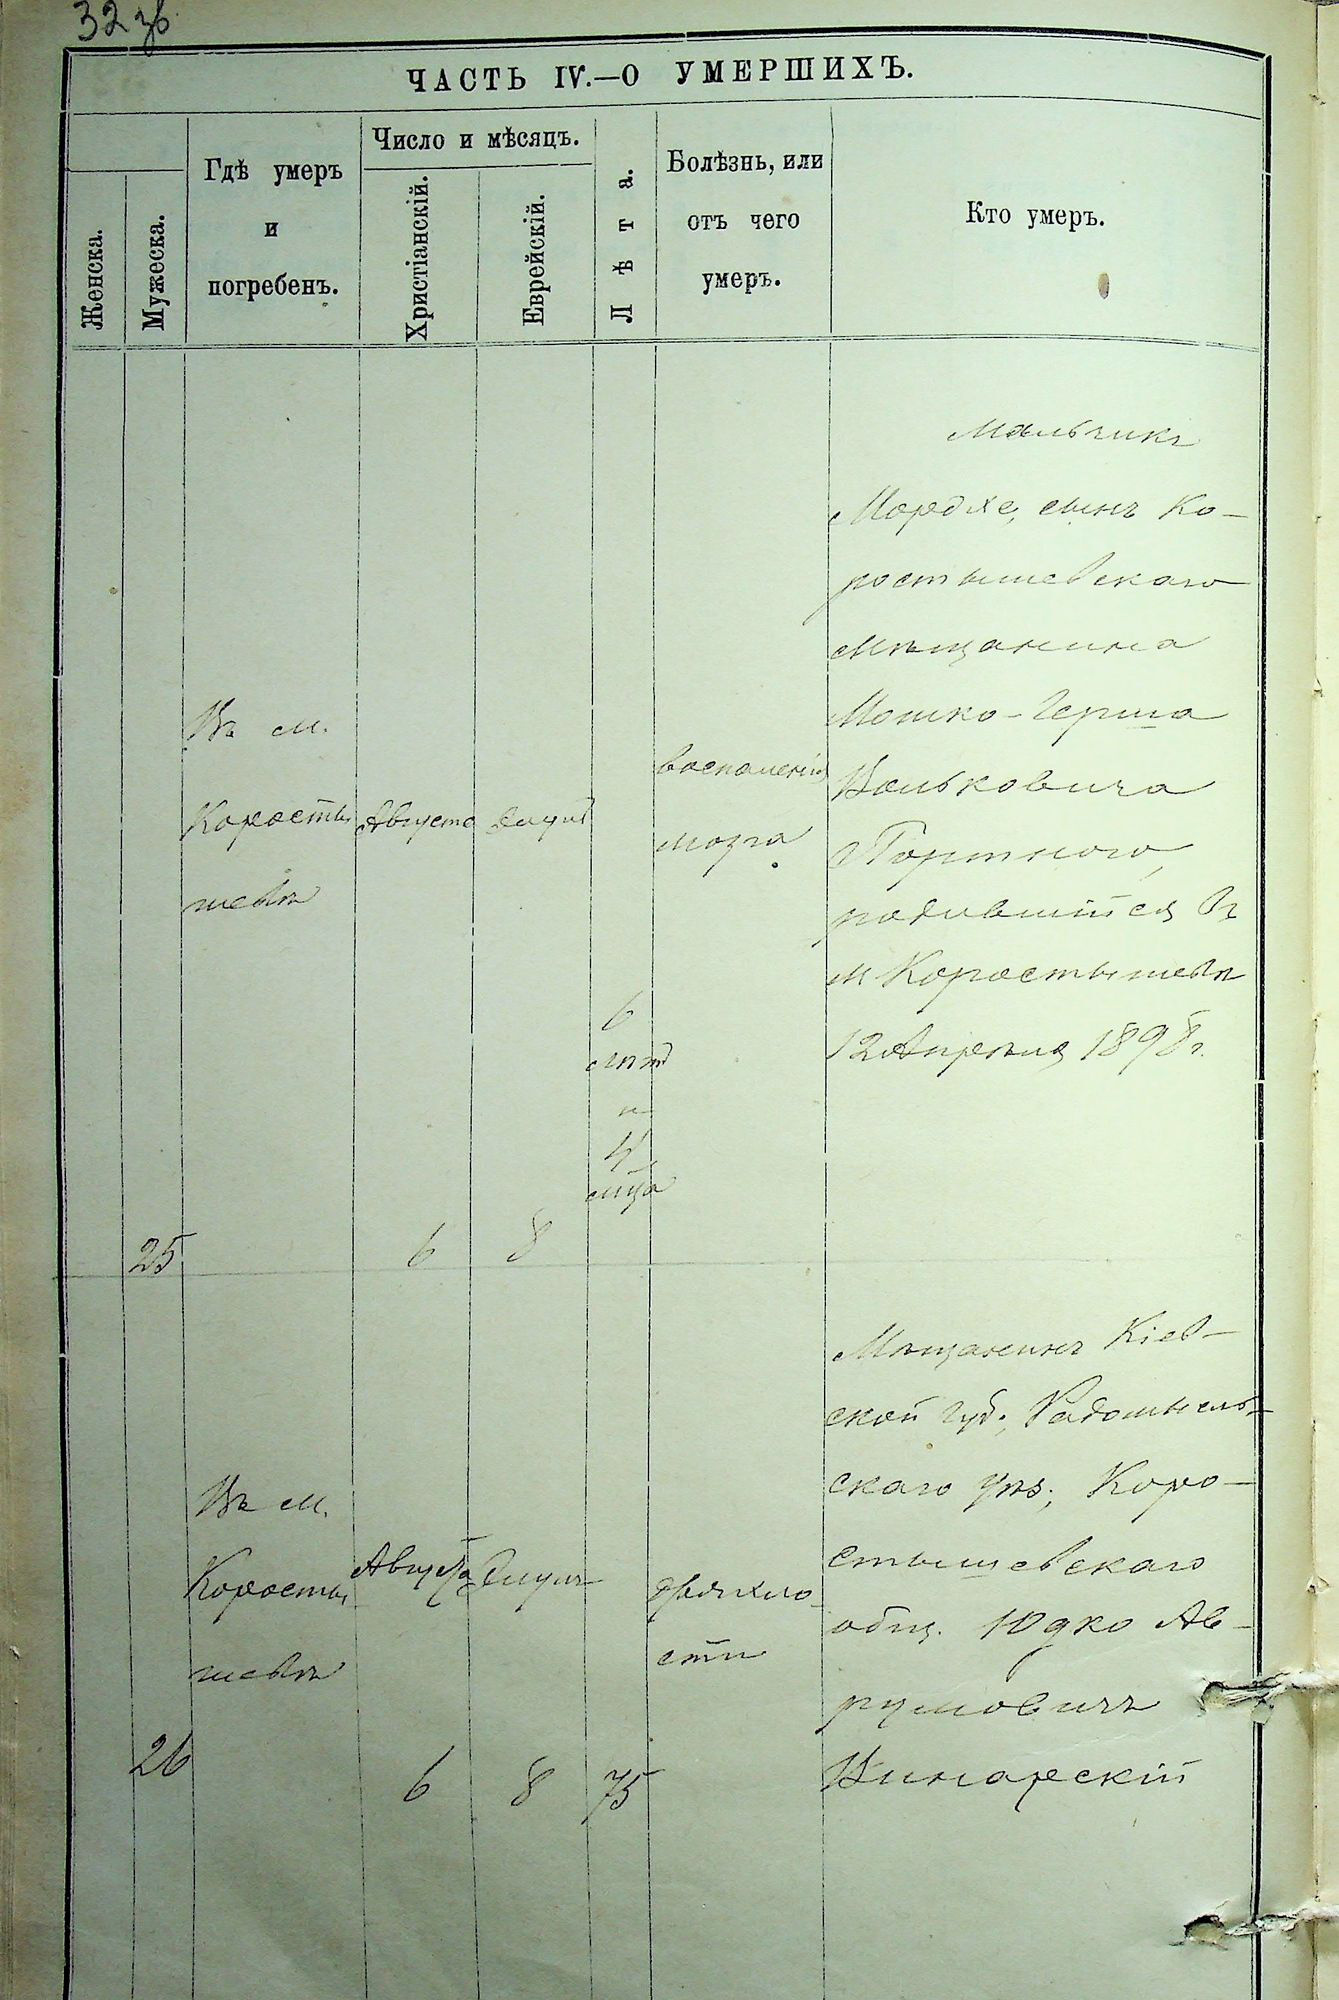 32 зв.
ЧАСТЬ IV.—О УМЕРШИХЪ.
Женска.
Мужеска.
Гдѣ умеръ
и
погребенъ.
Число и мѣсяцъ.
Христіанскій.
Еврейскій.
Лѣта.
Болѣзнь, или
отъ чего
умеръ.
Кто умеръ.
25
Въ м.
Коросты
шевѣ
Августа
6
8
6
и
4
воспаленія
мозга
Мальчикъ
Мордхе, сынъ Ко-
ростышевскаго
мѣщанина
Мошко-Герша
Вольковича
Портного,
родившійся въ
м Коростышевѣ
12 Апрѣля 1898 г.
26
Въ м.
Коросты
шевѣ
Августа
6
8
75
дряхло
сти
Мѣщанинъ Кіев-
ской губ., Радомысль-
скаго уѣз., Коро-
стышевскаго
общ. Юдко Ав-
румовичъ
Винарскій